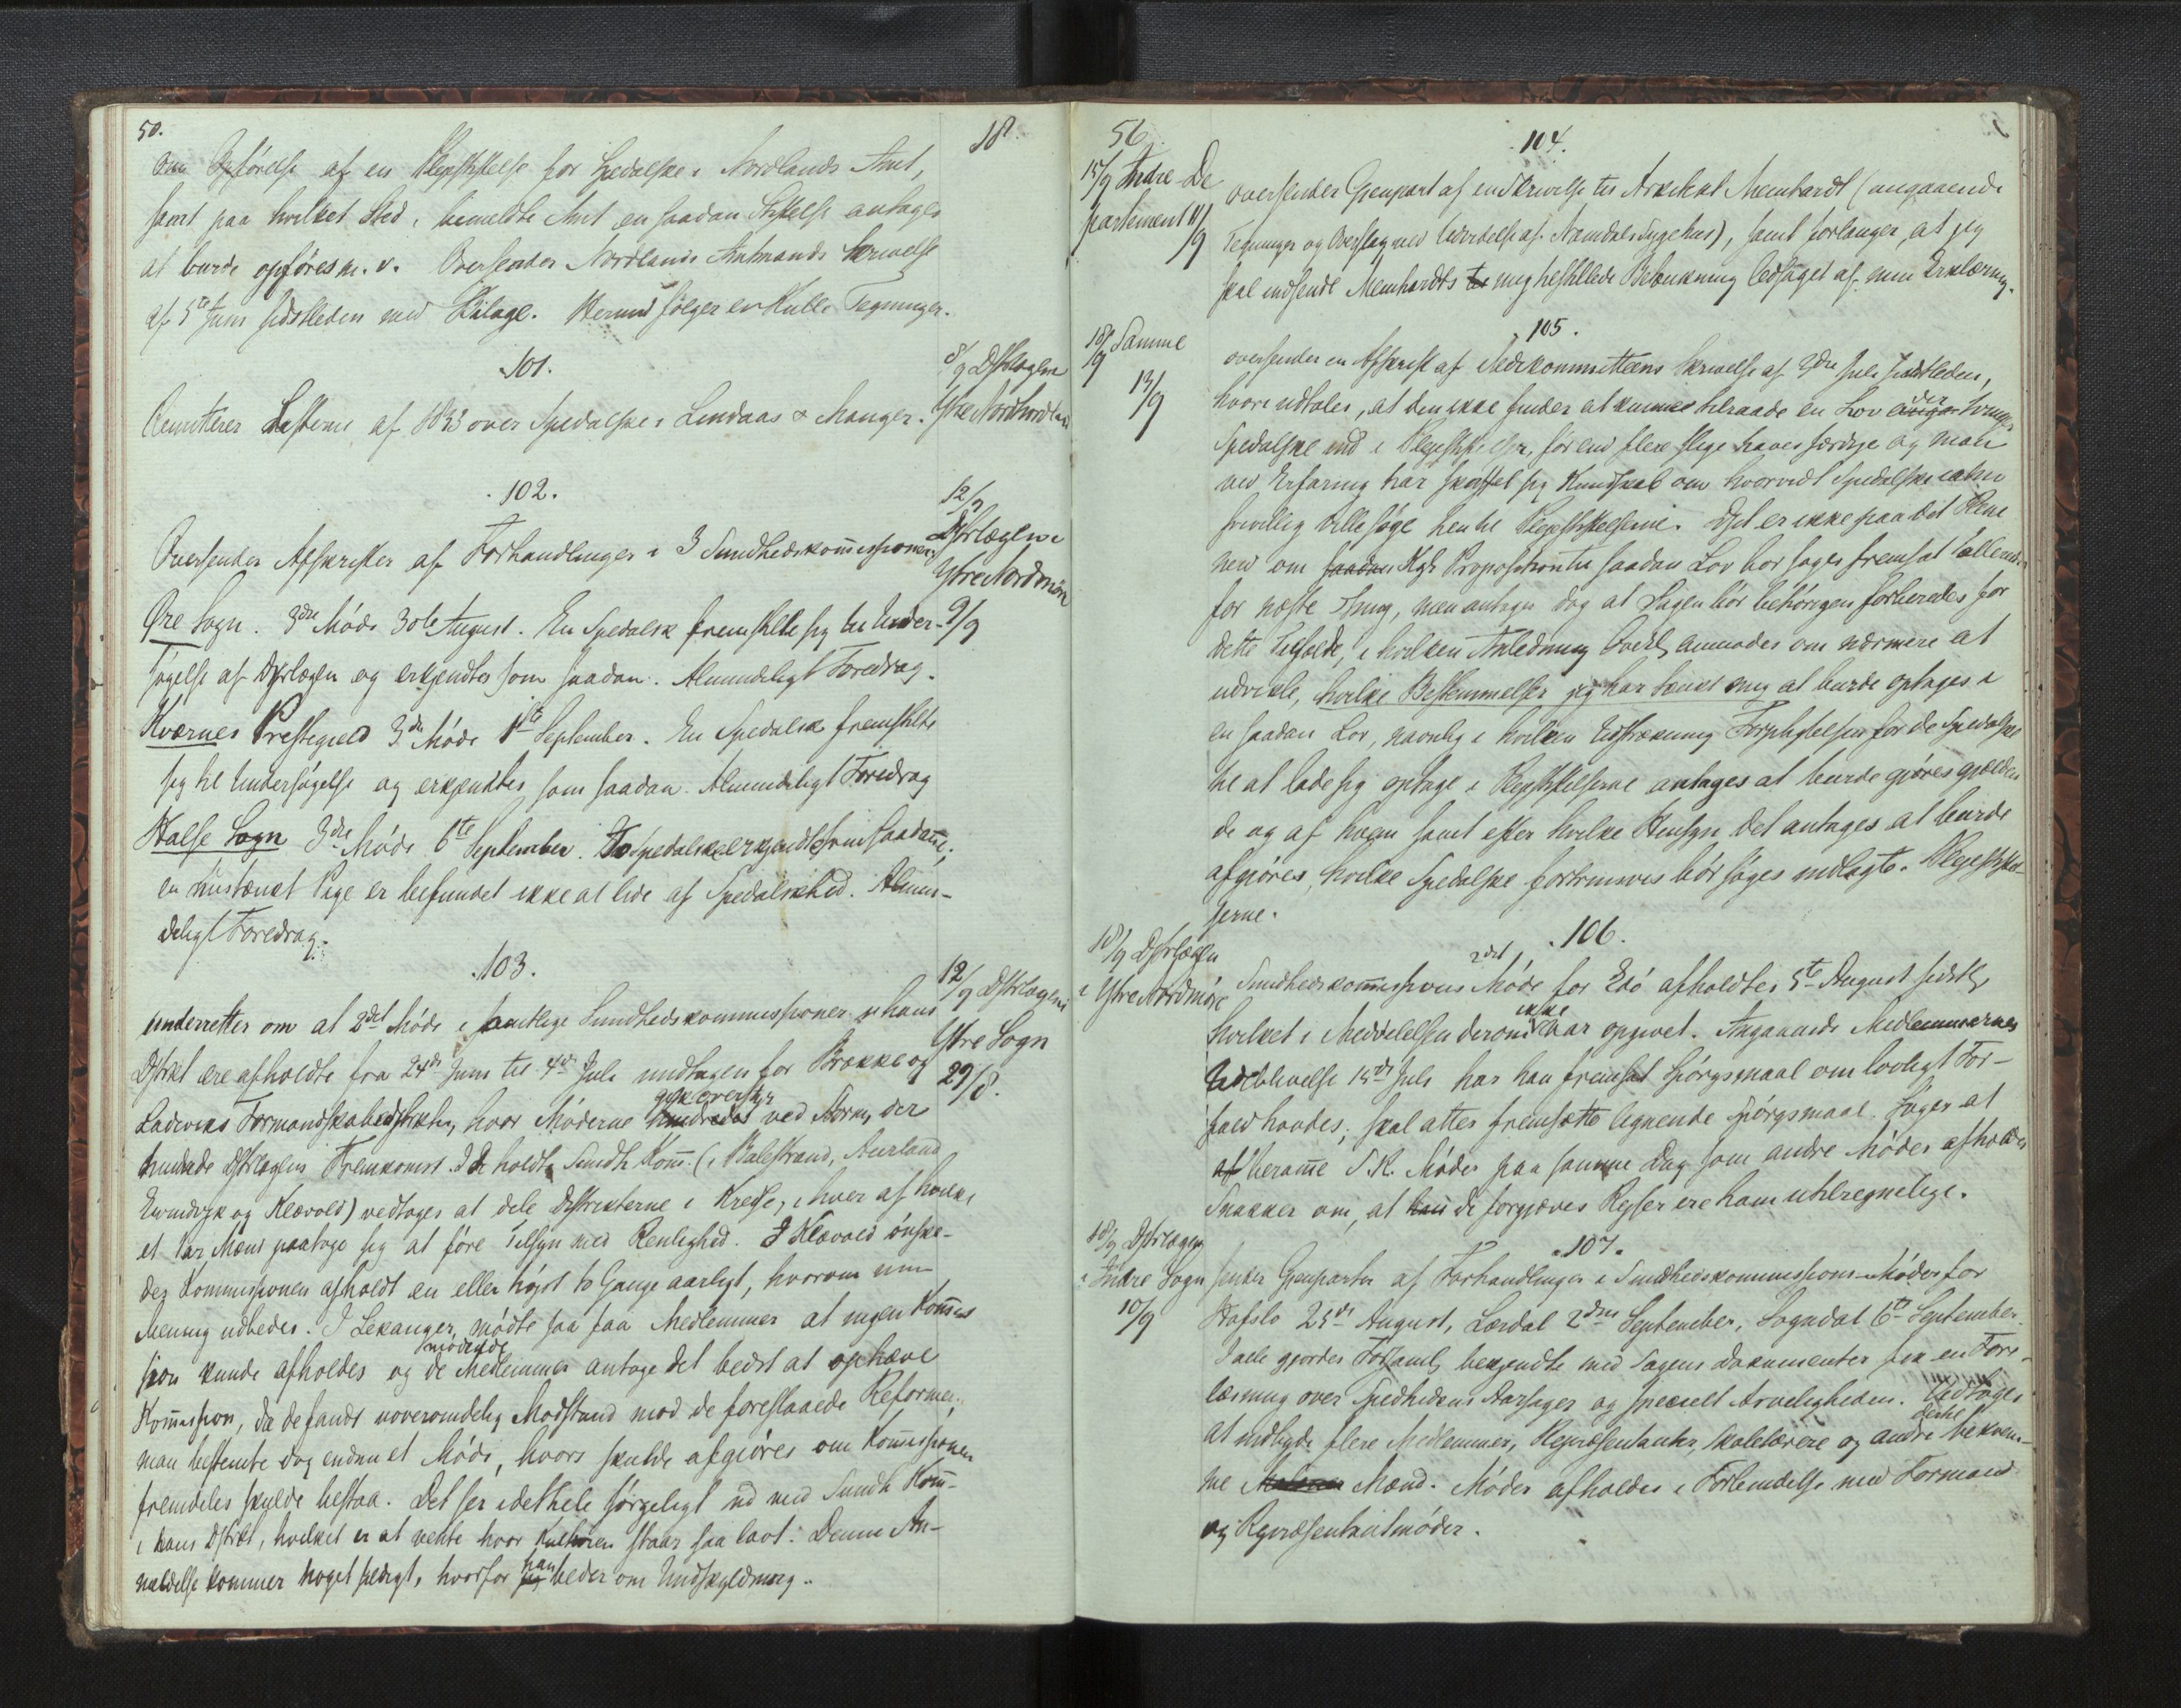 50.
18
Om Opførelse af en Pleiestiftelse for Spedalske i Nordlands Amt,
samt paa hvilket Sted i bemeldte Amt en saadan Stiftelse antages
at burde opføres m. v. Oversender Nordlands Amtmands Skrivelse
af 5te Juni sidstleden med Bilage. Hermed følger en Rulle Tegninger.
101.
8/9 Dstrlægen
Ytre Nordhordland
Remitterer Listerne af 1853 over Spedalske i Lindaas & Manger.
102.
12/9
Dstrlægen i
Ytre Nordmøre
9/9
Oversender Afskrifter af Forhandlinger i 3 Sundhedskommissioner
Øre Sogn. 3die Møde 30te August. En Spedalsk fremstillte sig til Under-
søgelse af Dstrlægen og erkjendtes som saadan. Almindeligt Foredrag.
Kværnes Prestegield 3die Møde 1ste September. En Spedalsk fremstilte
sig til Undersøgelse og erkjendtes som saadan. Almindeligt Foredrag
Halse Sogn 3die Møde 6te September. To Spedalske erkjendtes som saadanne;
en mistænkt Pige er befundet ikke at lide af Spedalskhed. Almin-
deligt Foredrag.
103.
12/9 Dstrlægen i
Ytre Sogn
29/8.
underretter om at 2det Møde i samtlige Sundhedskommissioner i hans
Dstrikt ere afholdte fra 24de Juni til 4de Juli undtagen for Brekke og
Ladeviks Formandskabsdistrikter, hvor Møderne gik overstyr ved Storm, der
hindrede Dstrlægens Fremkomst. I de holdte Sundh Komm. (i Balestrand, Aurland
Evindvig og Klævold) vedtoges at dele Distrikterne i Kredse, i hver af hvilke
et Par Mænd paatoge sig at føre Tilsyn med Renlighed. I Klævold ønske-
des Kommissionen afholdt en eller høist to Gange aarligt, hvorom min
Mening udbedes. I Lekanger, mødte saa faa Medlemmer at ingen Kommis
sion kunde afholdes og de mødende Medlemmer antoge det bedst at ophæve
Kommission, da de fandt uovervindelig Modstand mod de foreslaaede Reformer;
man bestemte dog endnu et Møde, hvori skulde afgiøres om Kommissionen
fremdeles skulde bestaa. Det ser idethele sørgeligt ud med Sundh Komm-
i hans Dstrikt, hvilket er at vente hvor Kulturen staar saa lavt. Denne An-
meldelse kommer noget sildigt, hvorfor han beder om Undskyldning.
56
104.
15/9 Indre De
partement 11/9
oversender Gienpart af en Skrivelse til Arkitekt Meinhardt (angaaende
Tegninger og Overslag ved Udvidelse af Namdals Sygehus), samt forlanger, at jeg
skal indsende Meinhardts til mig bestillede Betænkning ledsaget af min Erklæring.
105.
18/9 Samme
13/9
oversender en Afskrift af Medkommitteens Skrivelse af 3die Juli sidstleden,
hvori udtales, at den ikke finder at kunne tilraade en Lov der tvinger
Spedalske ind i Pleiestiftelser, førend flere slige haves færdige og man
ved Erfaring har skaffet sig Kundskab om hvorvidt Spedalske ikke
frivillig ville søge hen til Pleiestiftelserne. Det er ikke paa det Rene
men om Kgl Proposition til saadan Lov bør søges fremsat allerede
for næste Thing, men antages dog at Sagen bør behørigen forberedes for
dette Tilfælde, i hvilken Anledning Overl anmodes om nærmere at
udvikle, hvilke Bestemmelser jeg har tænkt mig at burde optages i
en saadan Lov, navnlig i hvilken Udstrækning Forpligtelsen for de Spedalske
til at lade sig optage i Pleiestiftelserne antages at burde gjøres gjælden
de og af hvem samt efter hvilke Hensyn det antages at burde
afgjøres, hvilke Spedalske fortrinsvis bør søges indlagte i Pleiestiftel-
serne.
106.
18/9 Dstrlægen
i Ytre Nordmøre
Sundhedskommissions 2det Møde for Edø afholdtes 5te August sidstl,
hvilket i Meddelelsen derom ikke var opgivet. Angaaende Medlemmernes
Udeblivelse 15de Juli har han fremsat Spørgsmaal om lovligt For-
fald havdes; skal atter fremsætte lignende Spørgsmaal. Søger at
beramme S.K. Møder paa samme Dag som andre Møder afholdes
Snakker om, at de forgjæves Reiser ere ham utilregnelige.
107.
18/9 Dstrlægen
i Indre Sogn
10/9
sender Gienparter af Forhandlinger i Sundhedskommissions-Møder for
Hafslo 25de August, Lærdal 2den September, Sogndal 6te September.
I alle gjordes Forsaml bekjendte med Sagens Dokumenter fik en Fore-
læsning over Spedhedens Aarsager og specielt Arveligheden. Vedtoges
at indbyde flere Medlemmer, Repræsentanter, Skolelærere og andre bekvem-
me Mænd. Møder afholdes i Forbindelse med Formand
og Repræsentantmøder.